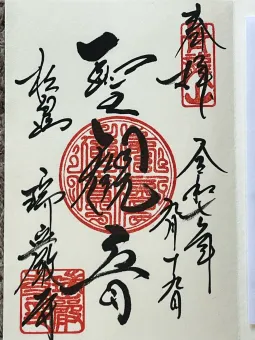 奉拝
令和七年
九月十九日
聖觀音
松島
瑞巌寺